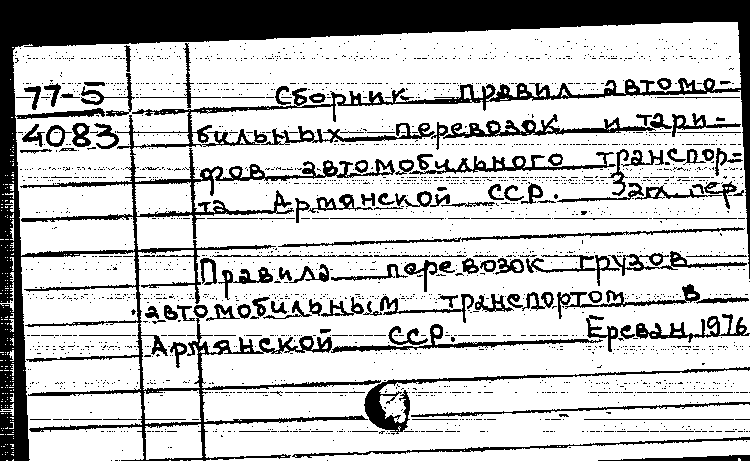 77-5 Сборник правил автомо-
4083 бильных перевозок и тари-
фов автомобильного транспор-
та Армянской ССР. Загл. пер.
Правила перевозок грузов
автомобильным транспортом в
Армянской ССР. Ереван, 1976